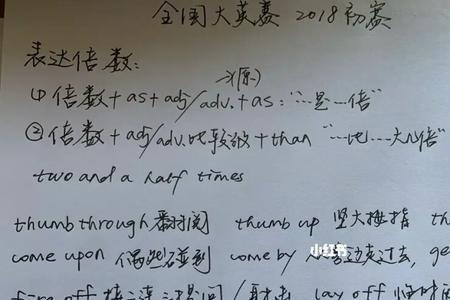 全国大英赛 2018初赛
表达倍数:
(原)
① 倍数+as+adj/adv.+as:"…是…倍"
② 倍数+adj/adv.比较级+than "…比…大几倍"
two and a half times
thumb through 翻阅 thumb up 竖大拇指 th
come upon 偶然碰到 come by 从旁边走过, ge
小红书
fire off lay off 临时